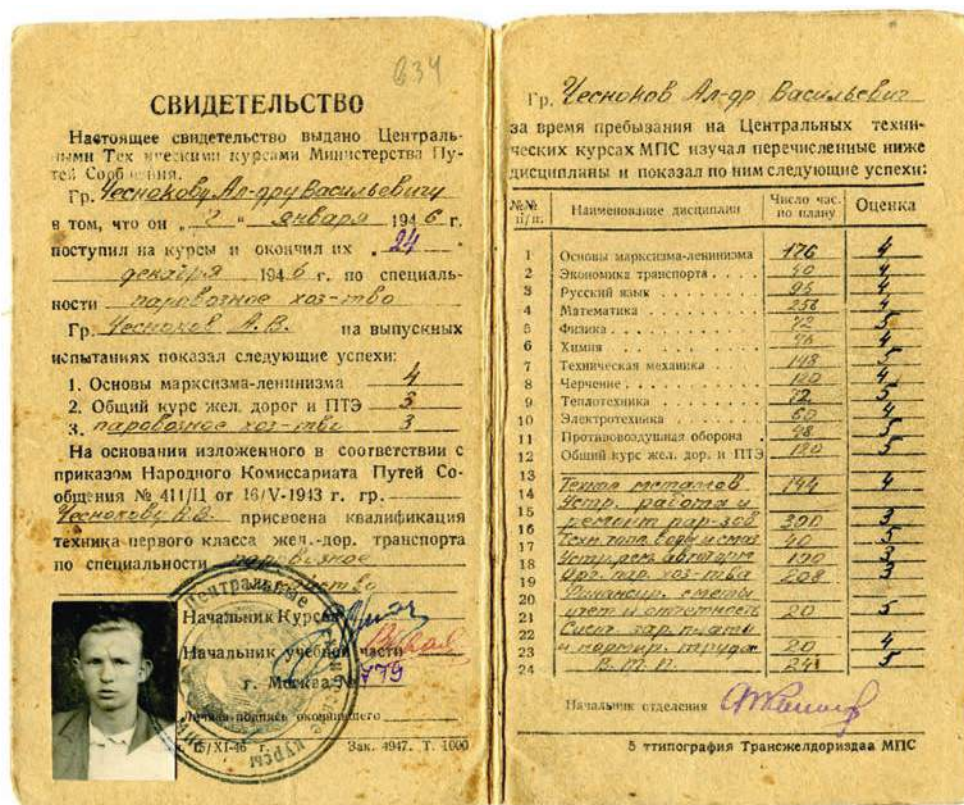 634
СВИДЕТЕЛЬСТВО
Настоящее свидетельство выдано Централь-
ными Техническими курсами Министерства Пу-
тей Сообщения.
Гр. Чеснокову Ал-дру Васильевичу
в том, что он „2“ января 1946 г.
поступил на курсы и окончил их „24
декабря 1946 г. по специаль-
ности паровозное хоз-тво
Гр. Чесноков А.В. на выпускных
испытаниях показал следующие успехи:
1. Основы марксизма-ленинизма 4
2. Общий курс жел. дорог и ПТЭ 3
3. паровозное хоз-тво 3
На основании изложенного в соответствии с
приказом Народного Комиссариата Путей Со-
общения № 411/Ц от 16/V-1943 г. гр.
Чеснокову А.В. присвоена квалификация
техника первого класса жел.-дор. транспорта
по специальности паровозное
Центральные
Начальник Курсов
Начальник учебной части
г. Москва № 779
Личная подпись окончившего
15/XI-46 г. Зак. 4947. Т. 1000
Гр. Чесноков Ал-др Васильевич
за время пребывания на Центральных техни-
ческих курсах МПС изучал перечисленные ниже
дисциплины и показал по ним следующие успехи:
№№ п/п. Наименование дисциплин Число час. по плану Оценка
1 Основы марксизма-ленинизма 176 4
2 Экономика транспорта . . . . 40 4
3 Русский язык . . . . . . . . 96 4
4 Математика . . . . . . . . 256 4
5 Физика . . . . . . . . . 72 5
6 Химия . . . . . . . . 4
7 Техническая механика . . 148 5
8 Черчение . . . . . . . . 120 4
9 Теплотехника . . . . . . . 72 5
10 Электротехника . . . . . . 60 4
11 Противовоздушная оборона . 48 5
12 Общий курс жел. дор. и ПТЭ 120 5
13
14 Техно металлов 144 4
15 Устр. работа и
16 ремонт пар-зов 300 3
17 Техн. топл. воды и смаз 40 5
18 Устр. рем. автоторм 190 3
19 Орг. пар. хоз-тва 208 3
20 Финансир. сметы
21 учет и отчетность 20 5
22 Сист. зар. платы
23 и нормир. труда 20 4
24 В.Т.П. 24 5
Начальник отделения
5 ттипография Трансжелдориздаа МПС